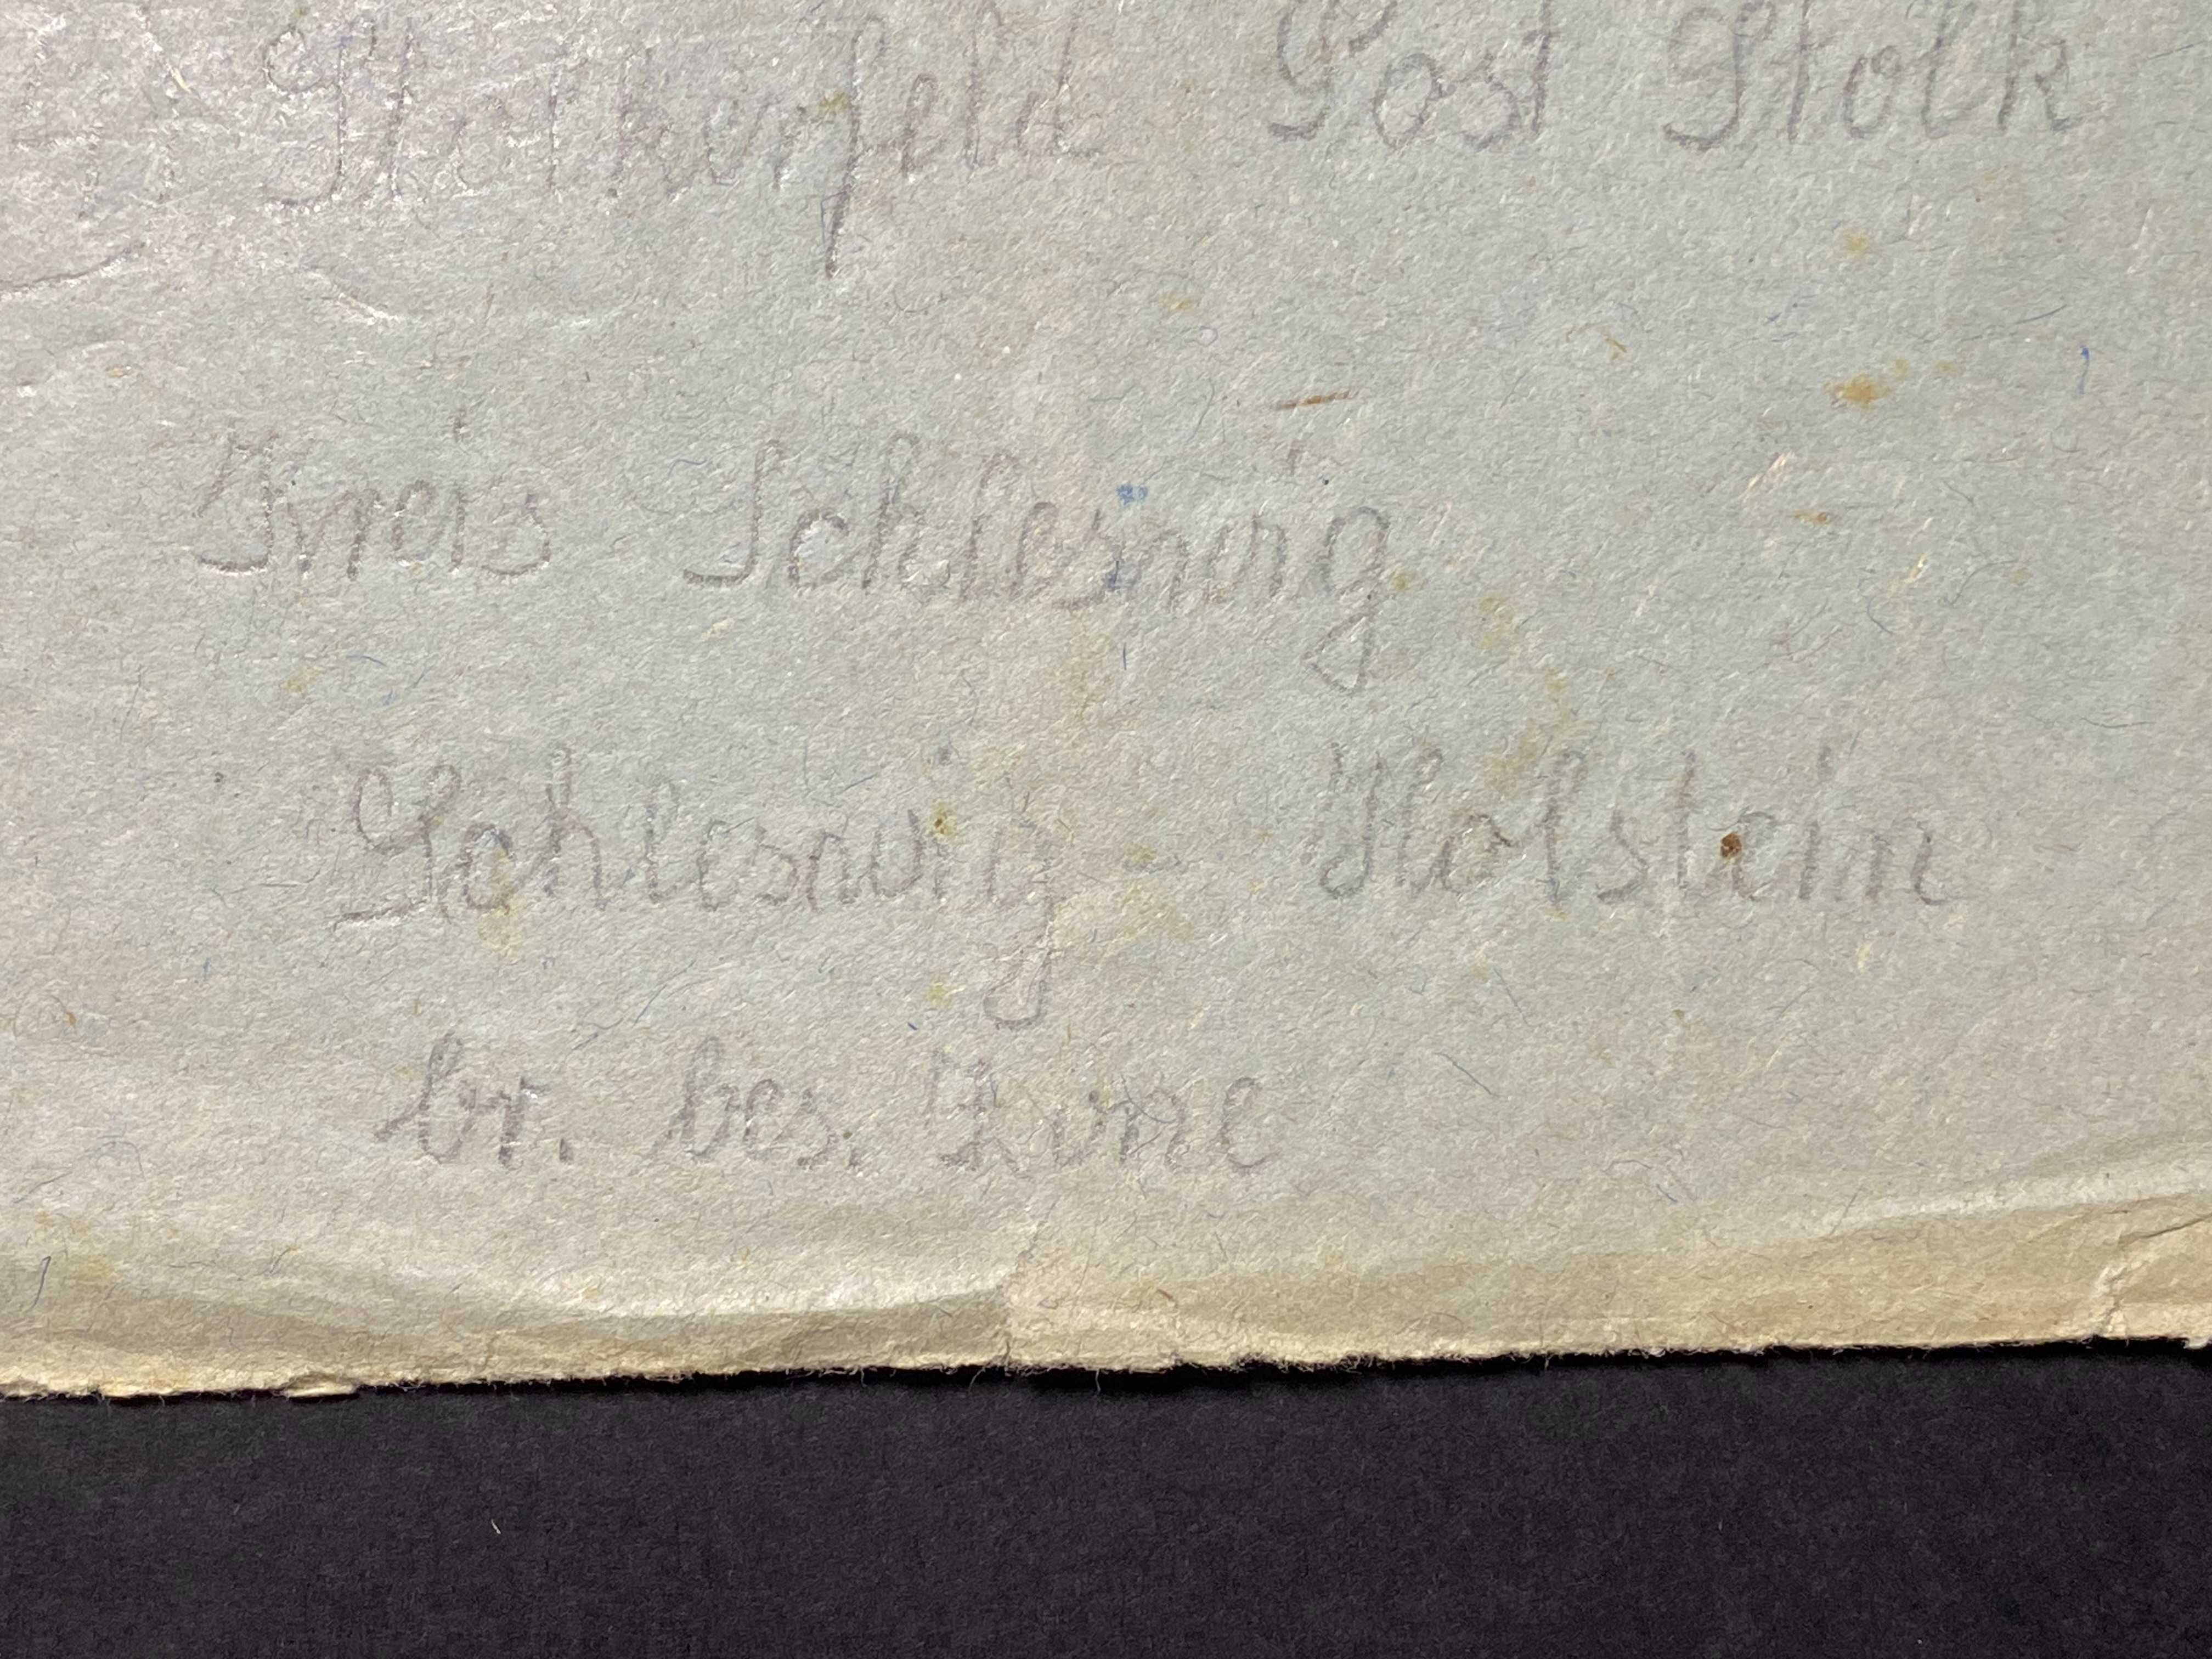 Stolkerfeld Post Stolk
Kreis Schleswig
Schleswig - Holstein
br. bes. Zone